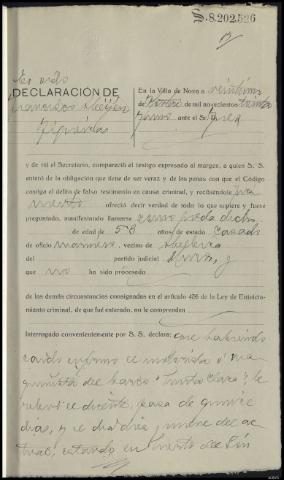 S.8.202,526
DECLARACIÓN DE
Francisco
En la Villa de Noya a veintiuno
de de mil novecientos treinta
ante el Sr. Juez
y de mí el Secretario, compareció el testigo expresado al margen, a quien S. S.
enteró de la obligación que tiene de ser veraz y de las penas con que el Código
castiga el delito de falso testimonio en causa criminal, y recibiéndole jura
mento ofreció decir verdad de todo lo que supiere y fuere
preguntado, manifestando llamarse como queda dicho,
de edad de 58 años de estado casado
de oficio marinero, vecino de
del partido judicial Muros, y
que no ha sido procesado
de las demás circunstancias consignadas en el artículo 436 de la Ley de Enjuicia-
miento criminal, de que fué enterado, no le comprenden
Interrogado convenientemente por S. S. declara: que habiendo
caído enfermo el motorista o ma
quinista del barco "Santa Clara", le
relevó el dicente, hace de quince
días, y el día diez nueve del ac
tual, estando en Puerto del Son